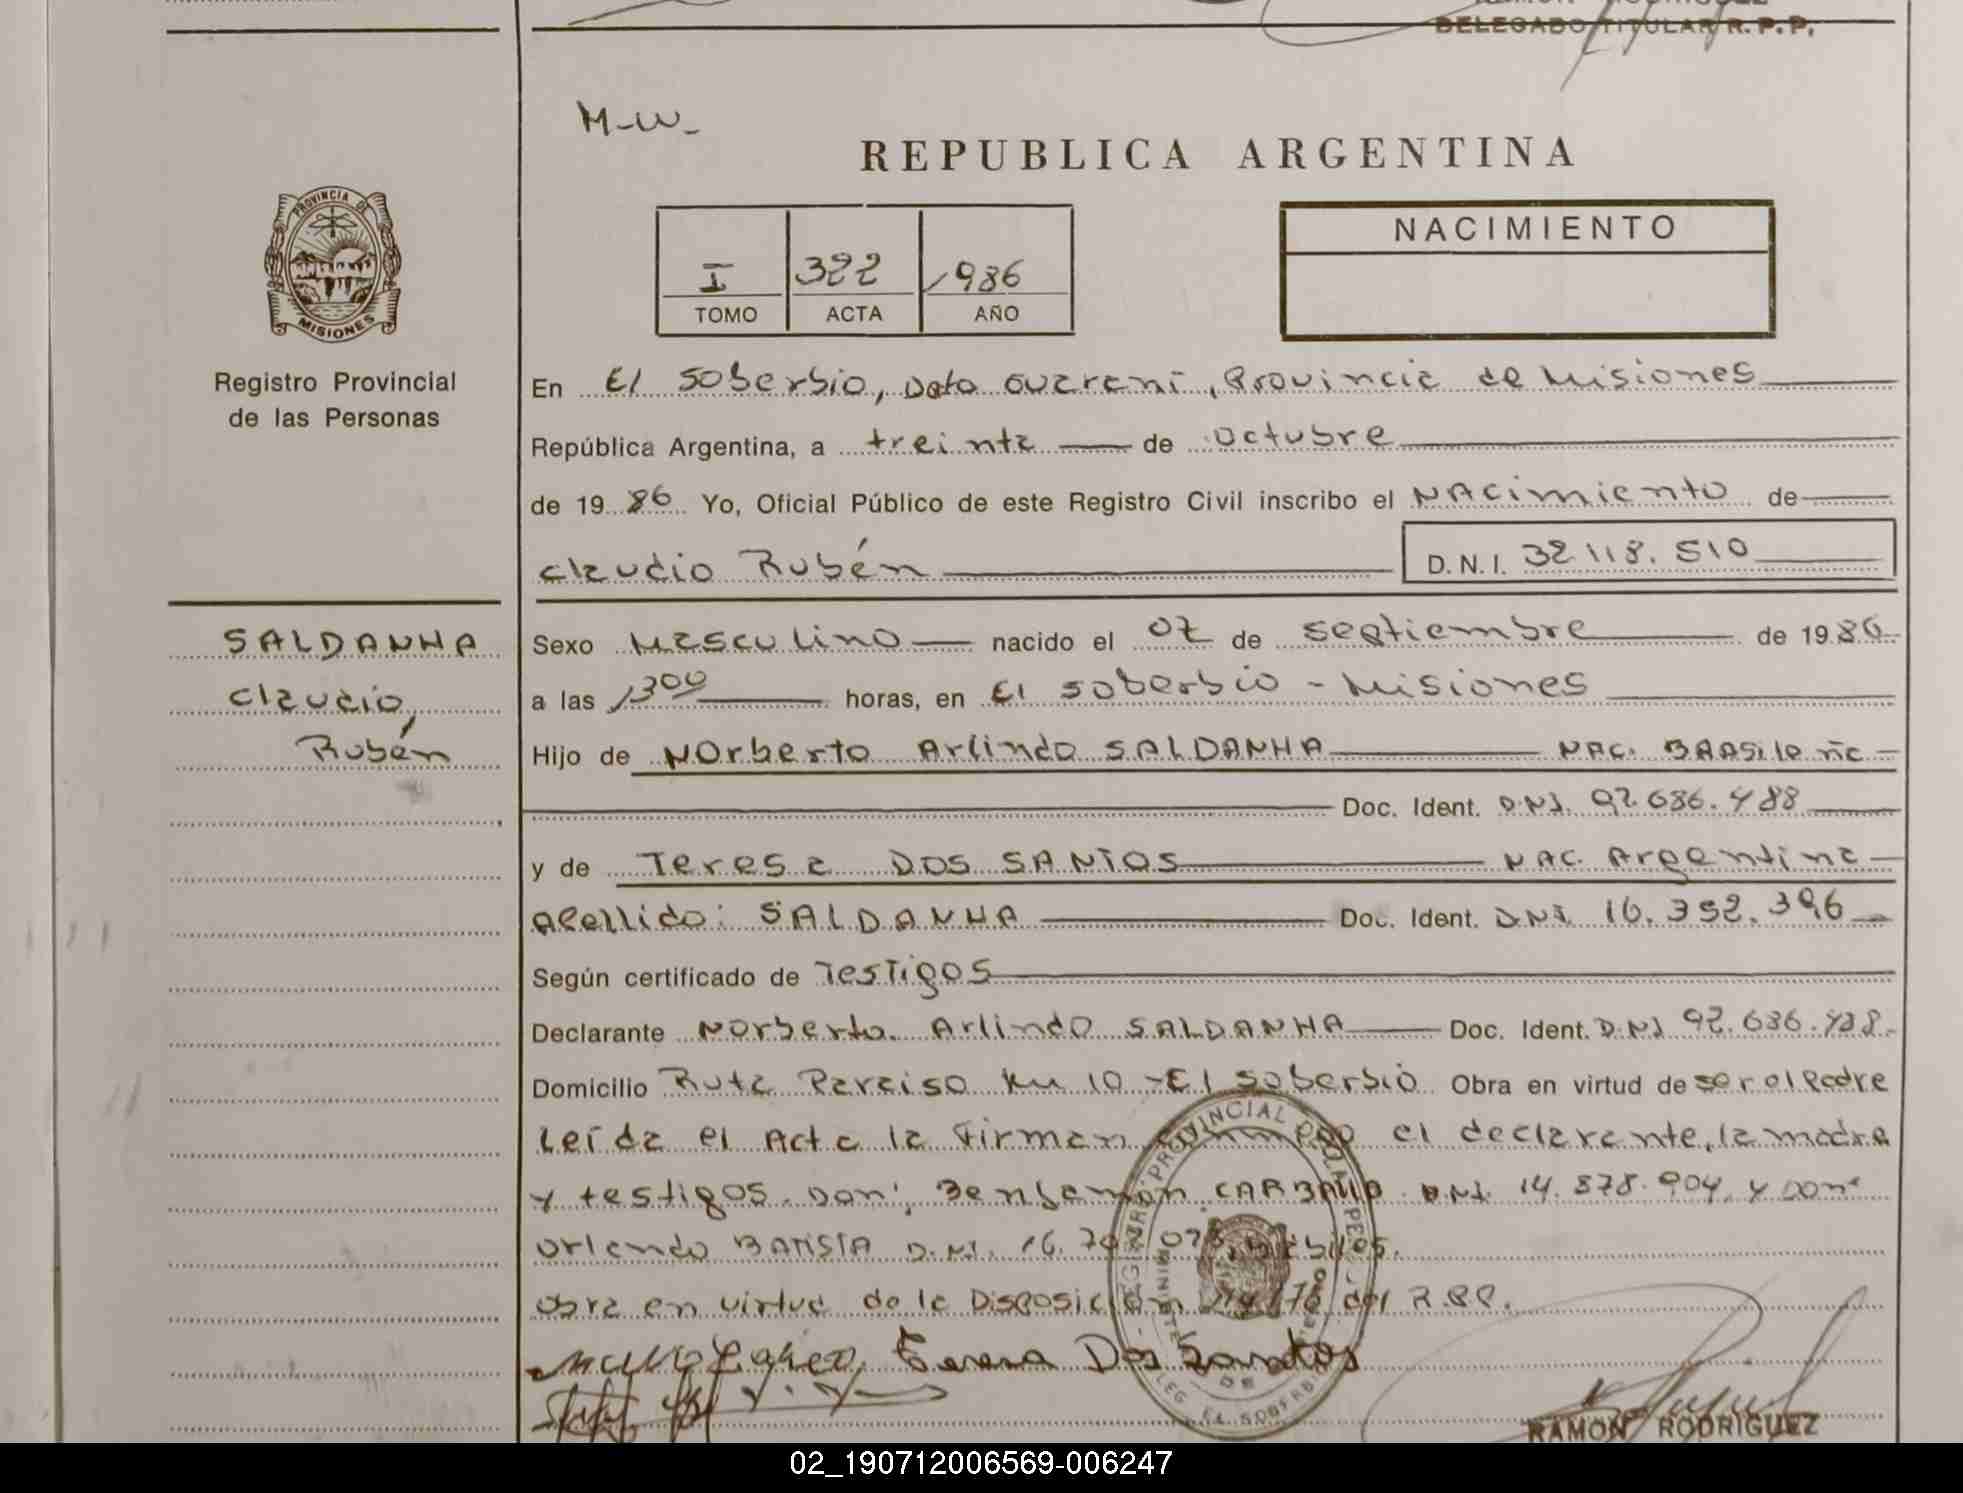 RAMON RODRIGUEZ
DELEGADO TITULAR R.P.P.
M-W-
REPUBLICA ARGENTINA
PROVINCIA DE
MISIONES
Registro Provincial
de las Personas
I 322 1986
TOMO ACTA AÑO
NACIMIENTO
En El Soberbio, Dpto Guaraní, Provincia de Misiones
República Argentina, a treinta de octubre
de 1986 Yo, Oficial Público de este Registro Civil inscribo el NAcimiento de
Claudio Rubén D.N.I. 32.118.510
SALDANHA
Claudio,
Rubén
Sexo Masculino nacido el 07 de septiembre de 1986
a las 1300 horas, en El Soberbio - Misiones
Hijo de NOrberto Arlindo SALDANHA NAC. BRAsileña
Doc. Ident. D.N.I. 92.686.488
y de Teresa DOS SANTOS NAC. Argentina
apellido: SALDANHA Doc. Ident. D.N.I. 16.352.396
Según certificado de Testigos
Declarante Norberto Arlindo SALDANHA Doc. Ident. D.N.I. 92.686.488
Domicilio Ruta Paraiso Km 10 - El Soberbio Obra en virtud de ser el Padre
Leída el Acta la Firman conmigo el declarante, la madre
y testigos Don: Benjamon CARBALLO D.N.I. 14.878.904 y Don
Orlando BATISTA D.N.I. 16. hábiles.
Obra en virtud de la Disposición del R.P.P.
Teresa Dos Santos
REGISTRO PROVINCIAL DE LAS PERSONAS
DELEG. EL SOBERBIO
RAMON RODRIGUEZ
02_190712006569-006247